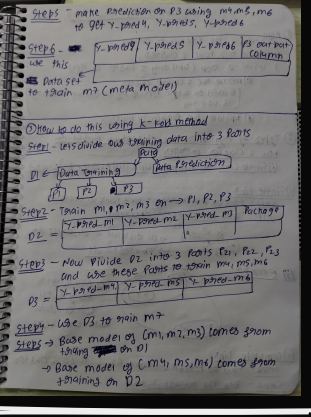 Step5 - make Prediction on P3 using m4,m5,m6
to get Y-pred4, Y-pred5, Y-pred6
Step6 -
use this
Data set
Y-pred4 Y-pred5 Y-pred6 P3 output column
to train m7 (meta model)
② How to do this using K-Fold method
Step1 - lets divide our training data into 3 Parts
Data
D1 Data Training Data Prediction
P1 P2 P3
Step2 - Train m1, m2, m3 on → P1, P2, P3
D2 = Y-pred-m1 Y-pred-m2 Y-pred-m3 Package
Step3 - Now Divide D2 into 3 Parts P21, P22, P23
and use these Parts to train m4, m5, m6
D3 = Y-pred-m4 Y-pred-m5 Y-pred-m6
Step4 - use D3 to train m7
Step5 → Base model of (m1, m2, m3) comes from
on D1
→ Base model of (m4, m5, m6) comes from
training on D2